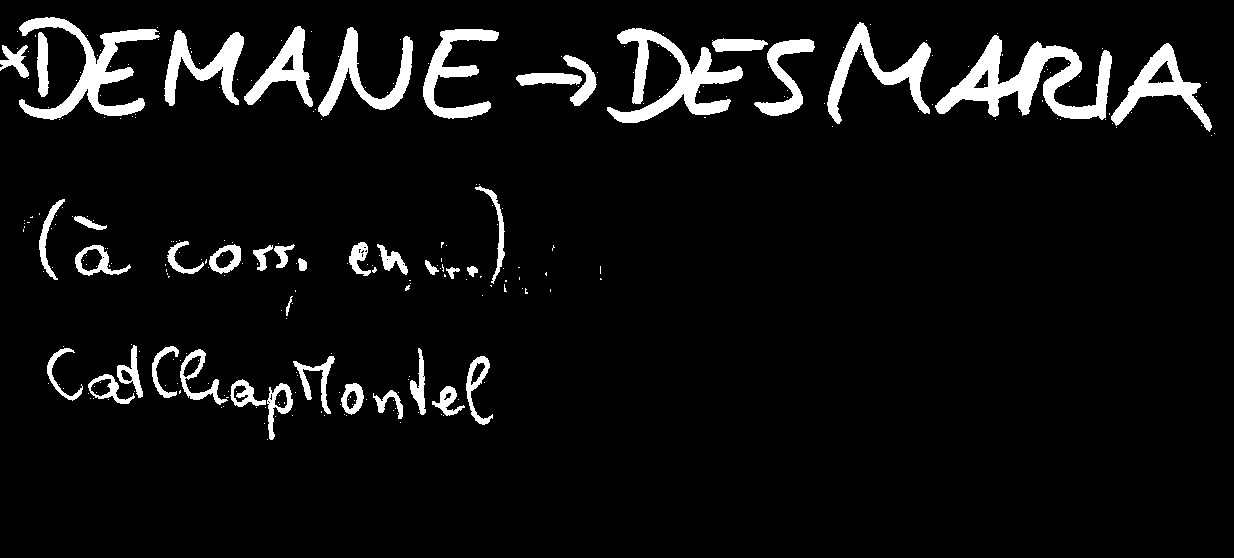 *DEMANE → DESMARIA
(à corr. en ...)
CatChapMontel